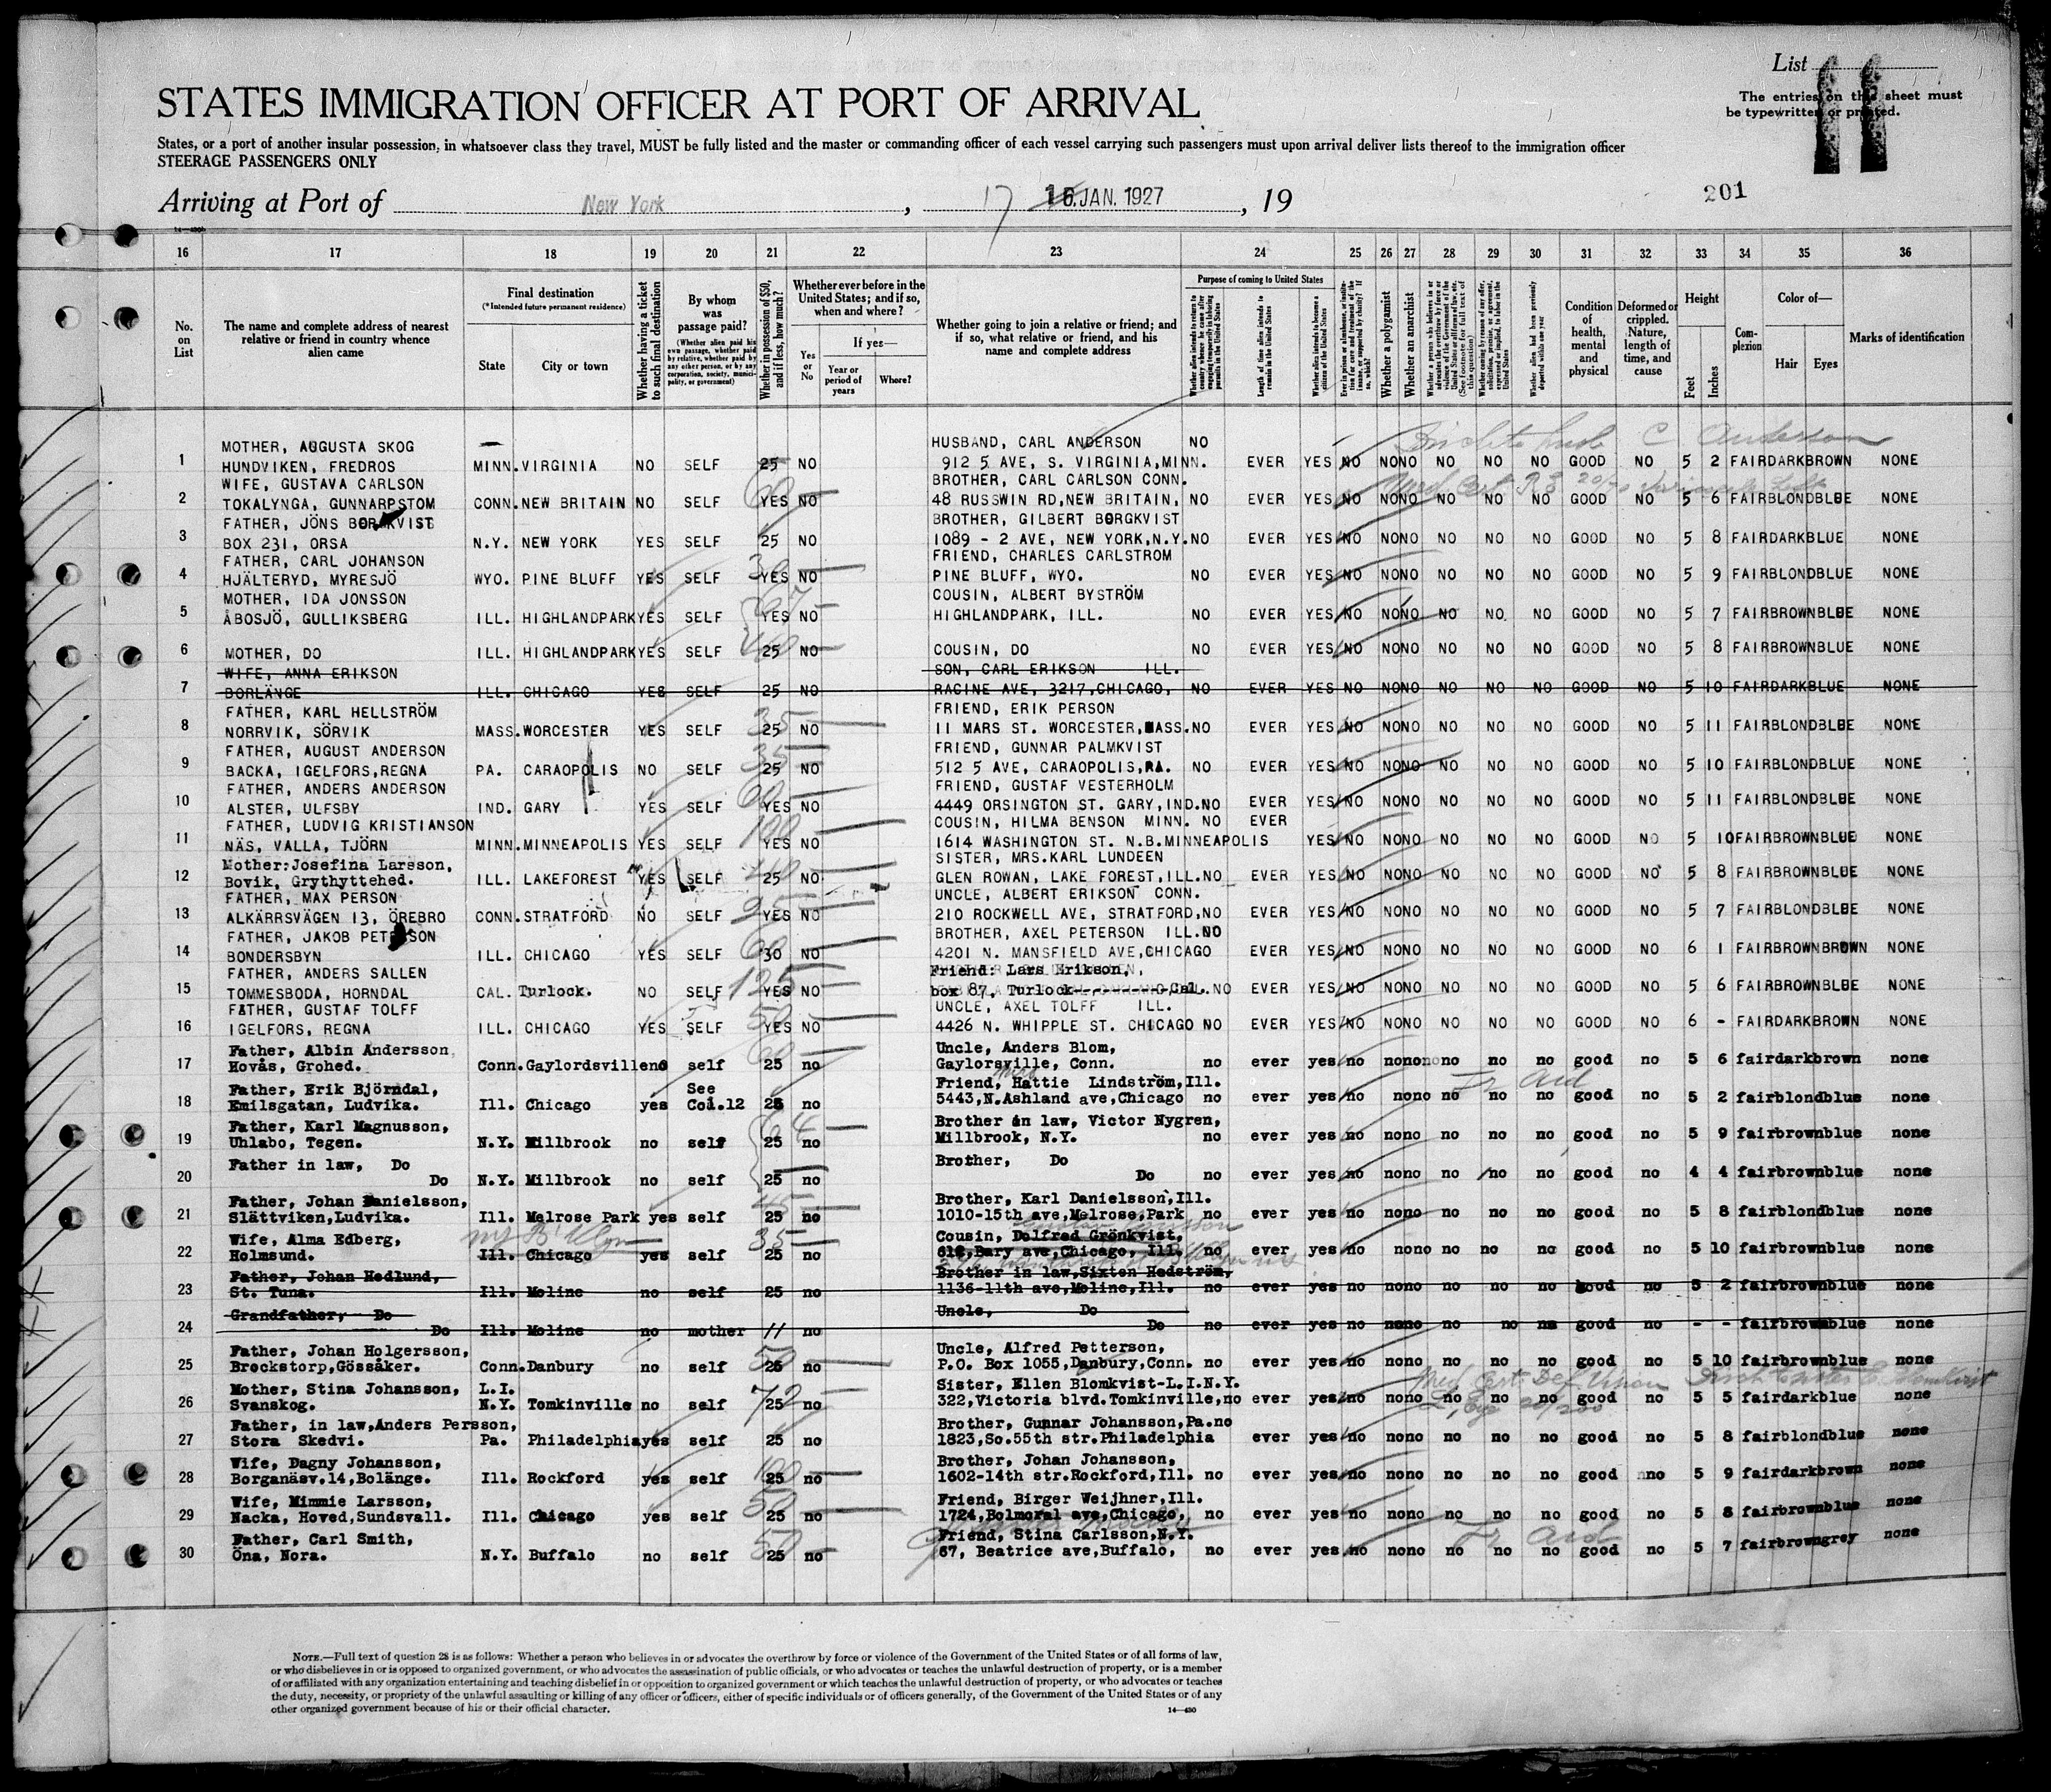 List 11
The entries on this sheet must
be typewritten or printed.
STATES IMMIGRATION OFFICER AT PORT OF ARRIVAL
States, or a port of another insular possession, in whatsoever class they travel, MUST be fully listed and the master or commanding officer of each vessel carrying such passengers must upon arrival deliver lists thereof to the immigration officer
STEERAGE PASSENGERS ONLY
201
Arriving at Port of New York, 17 JAN. 1927, 19
14-430
16 17 18 19 20 21 22 23 24 25 26 27 28 29 30 31 32 33 34 35 36
No. on List
The name and complete address of nearest relative or friend in country whence alien came
Final destination
(*Intended future permanent residence)
State City or town
Whether having a ticket to such final destination
By whom was passage paid?
(Whether alien paid his own passage, whether paid by relative, whether paid by any other person, or by any corporation, society, municipality, or government)
Whether in possession of $50, and if less, how much?
Whether ever before in the United States; and if so, when and where?
Yes or No
If yes—
Year or period of years
Where?
Whether going to join a relative or friend; and if so, what relative or friend, and his name and complete address
Purpose of coming to United States
Length of time alien intends to remain in the United States
Whether alien intends to become a citizen of the United States
Whether a polygamist
Whether an anarchist
Condition of health, mental and physical
Deformed or crippled. Nature, length of time, and cause
Height
Feet Inches
Complexion
Color of—
Hair Eyes
Marks of identification
MOTHER, AUGUSTA SKOG HUSBAND, CARL ANDERSON NO C. Anderson
1 HUNDVIKEN, FREDROS MINN. VIRGINIA NO SELF 25 NO 912 5 AVE, S. VIRGINIA, MINN. EVER YES NO NO NO NO NO NO GOOD NO 5 2 FAIR DARK BROWN NONE
WIFE, GUSTAVA CARLSON BROTHER, CARL CARLSON CONN.
2 TOKALYNGA, GUNNARPSTOM CONN. NEW BRITAIN NO SELF YES NO 48 RUSSWIN RD, NEW BRITAIN, NO EVER YES NO NO NO NO NO NO GOOD NO 5 6 FAIR BLOND BLUE NONE
FATHER, JÖNS BORGKVIST BROTHER, GILBERT BORGKVIST
3 BOX 231, ORSA N.Y. NEW YORK YES SELF 25 NO 1089 - 2 AVE, NEW YORK, N.Y. NO EVER YES NO NO NO NO NO NO GOOD NO 5 8 FAIR DARK BLUE NONE
FATHER, CARL JOHANSON FRIEND, CHARLES CARLSTROM
4 HJÄLTERYD, MYRESJÖ WYO. PINE BLUFF YES SELF YES NO PINE BLUFF, WYO. NO EVER YES NO NO NO NO NO NO GOOD NO 5 9 FAIR BLOND BLUE NONE
MOTHER, IDA JONSSON COUSIN, ALBERT BYSTRÖM
5 ÅBOSJÖ, GULLIKSBERG ILL. HIGHLANDPARK YES SELF YES NO HIGHLANDPARK, ILL. NO EVER YES NO NO NO NO NO NO GOOD NO 5 7 FAIR BROWN BLUE NONE
6 MOTHER, DO ILL. HIGHLANDPARK YES SELF 25 NO COUSIN, DO NO EVER YES NO NO NO NO NO NO GOOD NO 5 8 FAIR BROWN BLUE NONE
WIFE, ANNA ERIKSON SON, CARL ERIKSON ILL.
7 BORLÄNGE ILL. CHICAGO YES SELF 25 NO RACINE AVE, 3217, CHICAGO, NO EVER YES NO NO NO NO NO NO GOOD NO 5 10 FAIR DARK BLUE NONE
FATHER, KARL HELLSTRÖM FRIEND, ERIK PERSON
8 NORRVIK, SÖRVIK MASS. WORCESTER YES SELF 35 25 NO 11 MARS ST. WORCESTER, MASS. NO EVER YES NO NO NO NO NO NO GOOD NO 5 11 FAIR BLOND BLUE NONE
FATHER, AUGUST ANDERSON FRIEND, GUNNAR PALMKVIST
9 BACKA, IGELFORS, REGNA PA. CARAOPOLIS NO SELF 35 25 NO 512 5 AVE, CARAOPOLIS, PA. NO EVER YES NO NO NO NO NO NO GOOD NO 5 10 FAIR BLOND BLUE NONE
FATHER, ANDERS ANDERSON FRIEND, GUSTAF VESTERHOLM
10 ALSTER, ULFSBY IND. GARY YES SELF 60 YES NO 4449 ORSINGTON ST. GARY, IND. NO EVER YES NO NO NO NO NO NO GOOD NO 5 11 FAIR BLOND BLUE NONE
FATHER, LUDVIG KRISTIANSON COUSIN, HILMA BENSON MINN. NO EVER
11 NÄS, VALLA, TJÖRN MINN. MINNEAPOLIS YES SELF 100 YES NO 1614 WASHINGTON ST. N.B. MINNEAPOLIS YES NO NO NO NO NO NO GOOD NO 5 10 FAIR BROWN BLUE NONE
Mother: Josefina Larsson, SISTER, MRS. KARL LUNDEEN
12 Bovik, Grythyttehed. ILL. LAKEFOREST YES SELF 25 NO GLEN ROWAN, LAKE FOREST, ILL. NO EVER YES NO NO NO NO NO NO GOOD NO 5 8 FAIR BROWN BLUE NONE
FATHER, MAX PERSON UNCLE, ALBERT ERIKSON CONN.
13 ALKÄRRSVÄGEN 13, ÖREBRO CONN. STRATFORD NO SELF 95 YES NO 210 ROCKWELL AVE, STRATFORD, NO EVER YES NO NO NO NO NO NO GOOD NO 5 7 FAIR BLOND BLUE NONE
FATHER, JAKOB PETERSON BROTHER, AXEL PETERSON ILL. NO
14 BONDERSBYN ILL. CHICAGO YES SELF 60 30 NO 4201 N. MANSFIELD AVE, CHICAGO EVER YES NO NO NO NO NO NO GOOD NO 6 1 FAIR BROWN BROWN NONE
FATHER, ANDERS SALLEN Friend: Lars Erikson,
15 TOMMESBODA, HORNDAL CAL. Turlock. NO SELF 125 YES NO box 87, Turlock Cal. NO EVER YES NO NO NO NO NO NO GOOD NO 5 6 FAIR BROWN BLUE NONE
FATHER, GUSTAF TOLFF UNCLE, AXEL TOLFF ILL.
16 IGELFORS, REGNA ILL. CHICAGO YES SELF 50 YES NO 4426 N. WHIPPLE ST. CHICAGO NO EVER YES NO NO NO NO NO NO GOOD NO 6 - FAIR DARK BROWN NONE
Father, Albin Andersson, Uncle, Anders Blom,
17 Hovås, Grohed. Conn. Gaylordsville no self 60 25 no Gaylorsville, Conn. no ever yes no no no no no no good no 5 6 fair dark brown none
Father, Erik Björndal, See Friend, Mrs Hattie Lindström, Ill. Tr Aid
18 Emilsgatan, Ludvika. Ill. Chicago yes Col.12 25 no 5443, N. Ashland ave, Chicago no ever yes no no no no no no good no 5 2 fair blond blue none
Father, Karl Magnusson, Brother in law, Victor Nygren,
19 Uhlabo, Tegen. N.Y. Millbrook no self 64 25 no Millbrook, N.Y. no ever yes no no no no no no good no 5 9 fair brown blue none
Father in law, Do Brother, Do
20 Do N.Y. Millbrook no self 25 no Do no ever yes no no no no no no good no 4 4 fair brown blue none
Father, Johan Danielsson, Brother, Karl Danielsson, Ill.
21 Slättviken, Ludvika. Ill. Melrose Park yes self 45 25 no 1010-15th ave, Melrose, Park no ever yes no no no no no no good no 5 8 fair blond blue none
Wife, Alma Edberg, Cousin, Dolfred Grönkvist,
22 Holmsund. Ill. Chicago yes self 35 25 no 612, Bary ave, Chicago, Ill. no ever yes no no no no no no good no 5 10 fair brown blue none
Father, Johan Hedlund, Brother in law, Sixten Hedström,
23 St. Tuna. Ill. Moline no self 25 no 1136-11th ave, Moline, Ill. no ever yes no no no no no no good no 5 2 fair brown blue none
Grandfather, Do Uncle, Do
24 Do Ill. Moline no mother 11 no Do no ever yes no no no no no no good no - - fair brown blue none
Father, Johan Holgersson, Uncle, Alfred Petterson,
25 Brockstorp, Gössåker. Conn. Danbury no self 50 25 no P.O. Box 1055, Danbury, Conn. no ever yes no no no no no no good no 5 10 fair brown blue none
Mother, Stina Johansson, L.I. Sister, Ellen Blomkvist-L.I.N.Y. Med Cert Def Vision
26 Svanskog. N.Y. Tomkinville no self 72 25 no 322, Victoria blvd. Tomkinville, no ever yes no no no no no no good no 5 5 fair dark blue none
L. Eye 20/200
Father, in law, Anders Persson, Brother, Gunnar Johansson, Pa. no
27 Stora Skedvi. Pa. Philadelphia yes self 25 no 1823, So. 55th str. Philadelphia ever yes no no no no no no good no 5 8 fair blond blue none
Wife, Dagny Johansson, Brother, Johan Johansson,
28 Borganäsv.14, Bolänge. Ill. Rockford yes self 100 25 no 1602-14th str. Rockford, Ill. no ever yes no no no no no no good no 5 9 fair dark brown none
Wife, Mimmie Larsson, Friend, Birger Weijhner, Ill.
29 Nacka, Hoved, Sundsvall. Ill. Chicago yes self 50 25 no 1724, Bolmoral ave, Chicago, no ever yes no no no no no no good no 5 8 fair brown blue none
Father, Carl Smith, Friend, Stina Carlsson, N.Y. Tr Aid
30 Öna, Nora. N.Y. Buffalo no self 50 25 no 67, Beatrice ave, Buffalo, no ever yes no no no no no no good no 5 7 fair brown grey none
NOTE.—Full text of question 28 is as follows: Whether a person who believes in or advocates the overthrow by force or violence of the Government of the United States or of all forms of law,
or who disbelieves in or is opposed to organized government, or who advocates the assassination of public officials, or who advocates or teaches the unlawful destruction of property, or is a member
of or affiliated with any organization entertaining and teaching disbelief in or opposition to organized government or which teaches the unlawful destruction of property, or who advocates or teaches
the duty, necessity, or propriety of the unlawful assaulting or killing of any officer or officers, either of specific individuals or of officers generally, of the Government of the United States or of any
other organized government because of his or their official character.
14-430